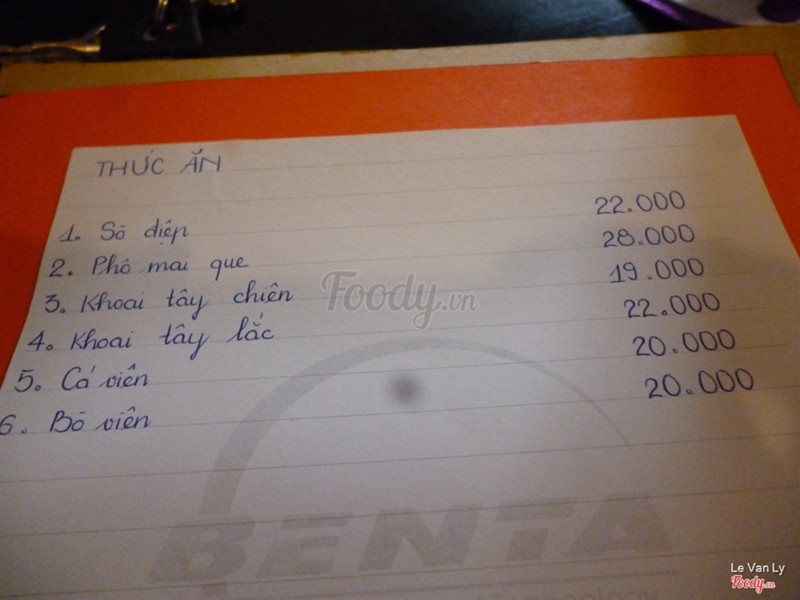 THỨC ĂN
1. Sò điệp 22.000
2. Phô mai que 28.000
3. Khoai tây chiên 19.000
4. Khoai tây lắc 22.000
5. Cá viên 20.000
6. Bò viên 20.000
Foody.vn
BENTA
Le Van Ly
Foody.vn